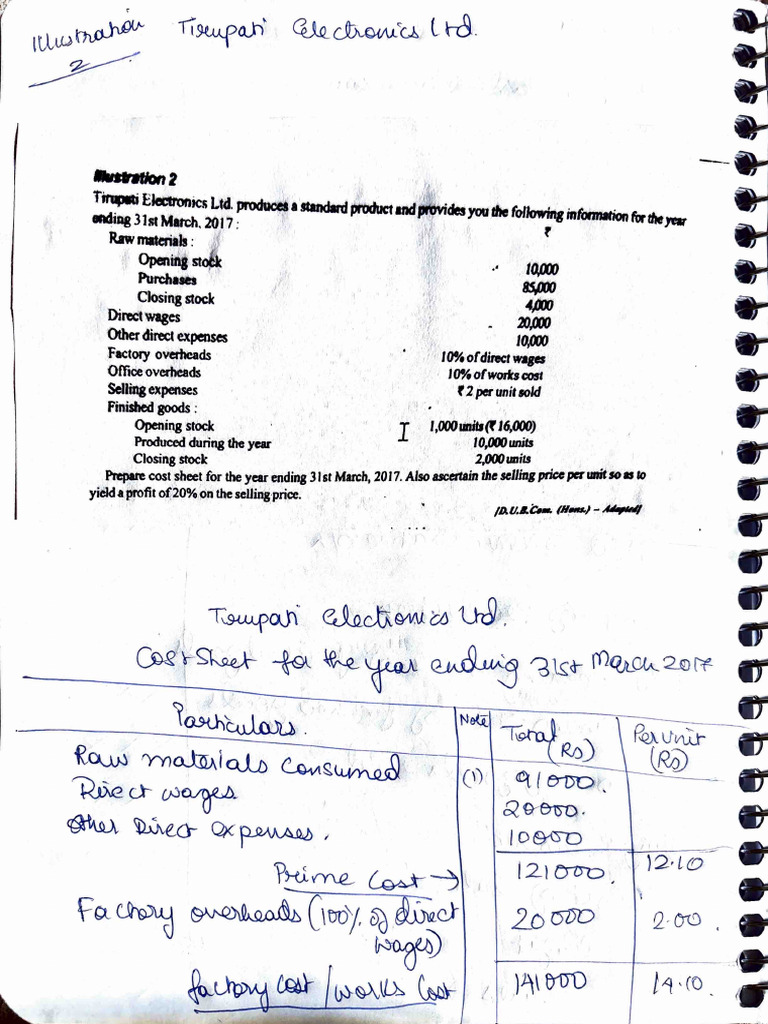 Illustration 2
Tirupati Electronics Ltd.
Illustration 2
Tirupati Electronics Ltd. produces a standard product and provides you the following information for the year
ending 31st March, 2017 :
₹
Raw materials :
Opening stock 10,000
Purchases 85,000
Closing stock 4,000
Direct wages 20,000
Other direct expenses 10,000
Factory overheads 10% of direct wages
Office overheads 10% of works cost
Selling expenses ₹ 2 per unit sold
Finished goods :
Opening stock 1,000 units (₹ 16,000)
Produced during the year 10,000 units
Closing stock 2,000 units
Prepare cost sheet for the year ending 31st March, 2017. Also ascertain the selling price per unit so as to
yield a profit of 20% on the selling price.
[D.U.B.Com. (Hons.) – Adapted]
Tirupati Electronics Ltd.
Cost Sheet for the year ending 31st March 2017
Particulars. Note Total (Rs) Per Unit (Rs)
Raw materials consumed (1) 91000.
Direct wages 20000.
Other Direct expenses. 10000
Prime Cost → 121000. 12.10
Factory overheads (100% of direct wages) 20000 2.00.
factory cost / works cost 141000 14.10.